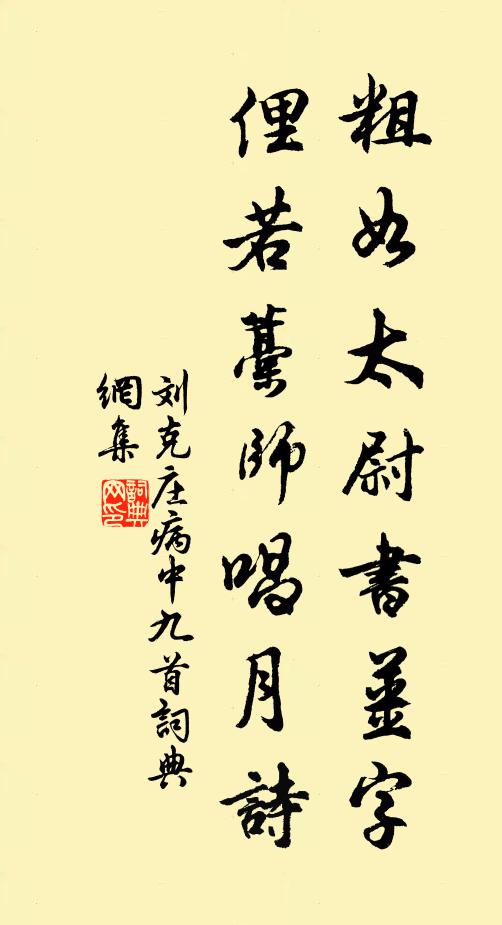 粗如太尉書薑字
俚若藁師唱月詩
刘克庄病中九首詞典
網集
詞典网印